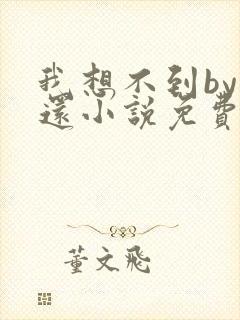 我想不到by
還小說免費
董文飛